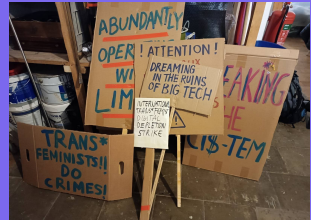 ABUNDANTLY
OPER
WI
LIM
! ATTENTION !
DREAMING
IN THE RUINS
OF BIG TECH
INTERNATIONAL
TRANS*FEMINIST
DIGITAL
DEPLETION
STRIKE
EAKING
THE
CIS-TEM
TRANS*
FEMINISTS!!
DO
CRIMES!